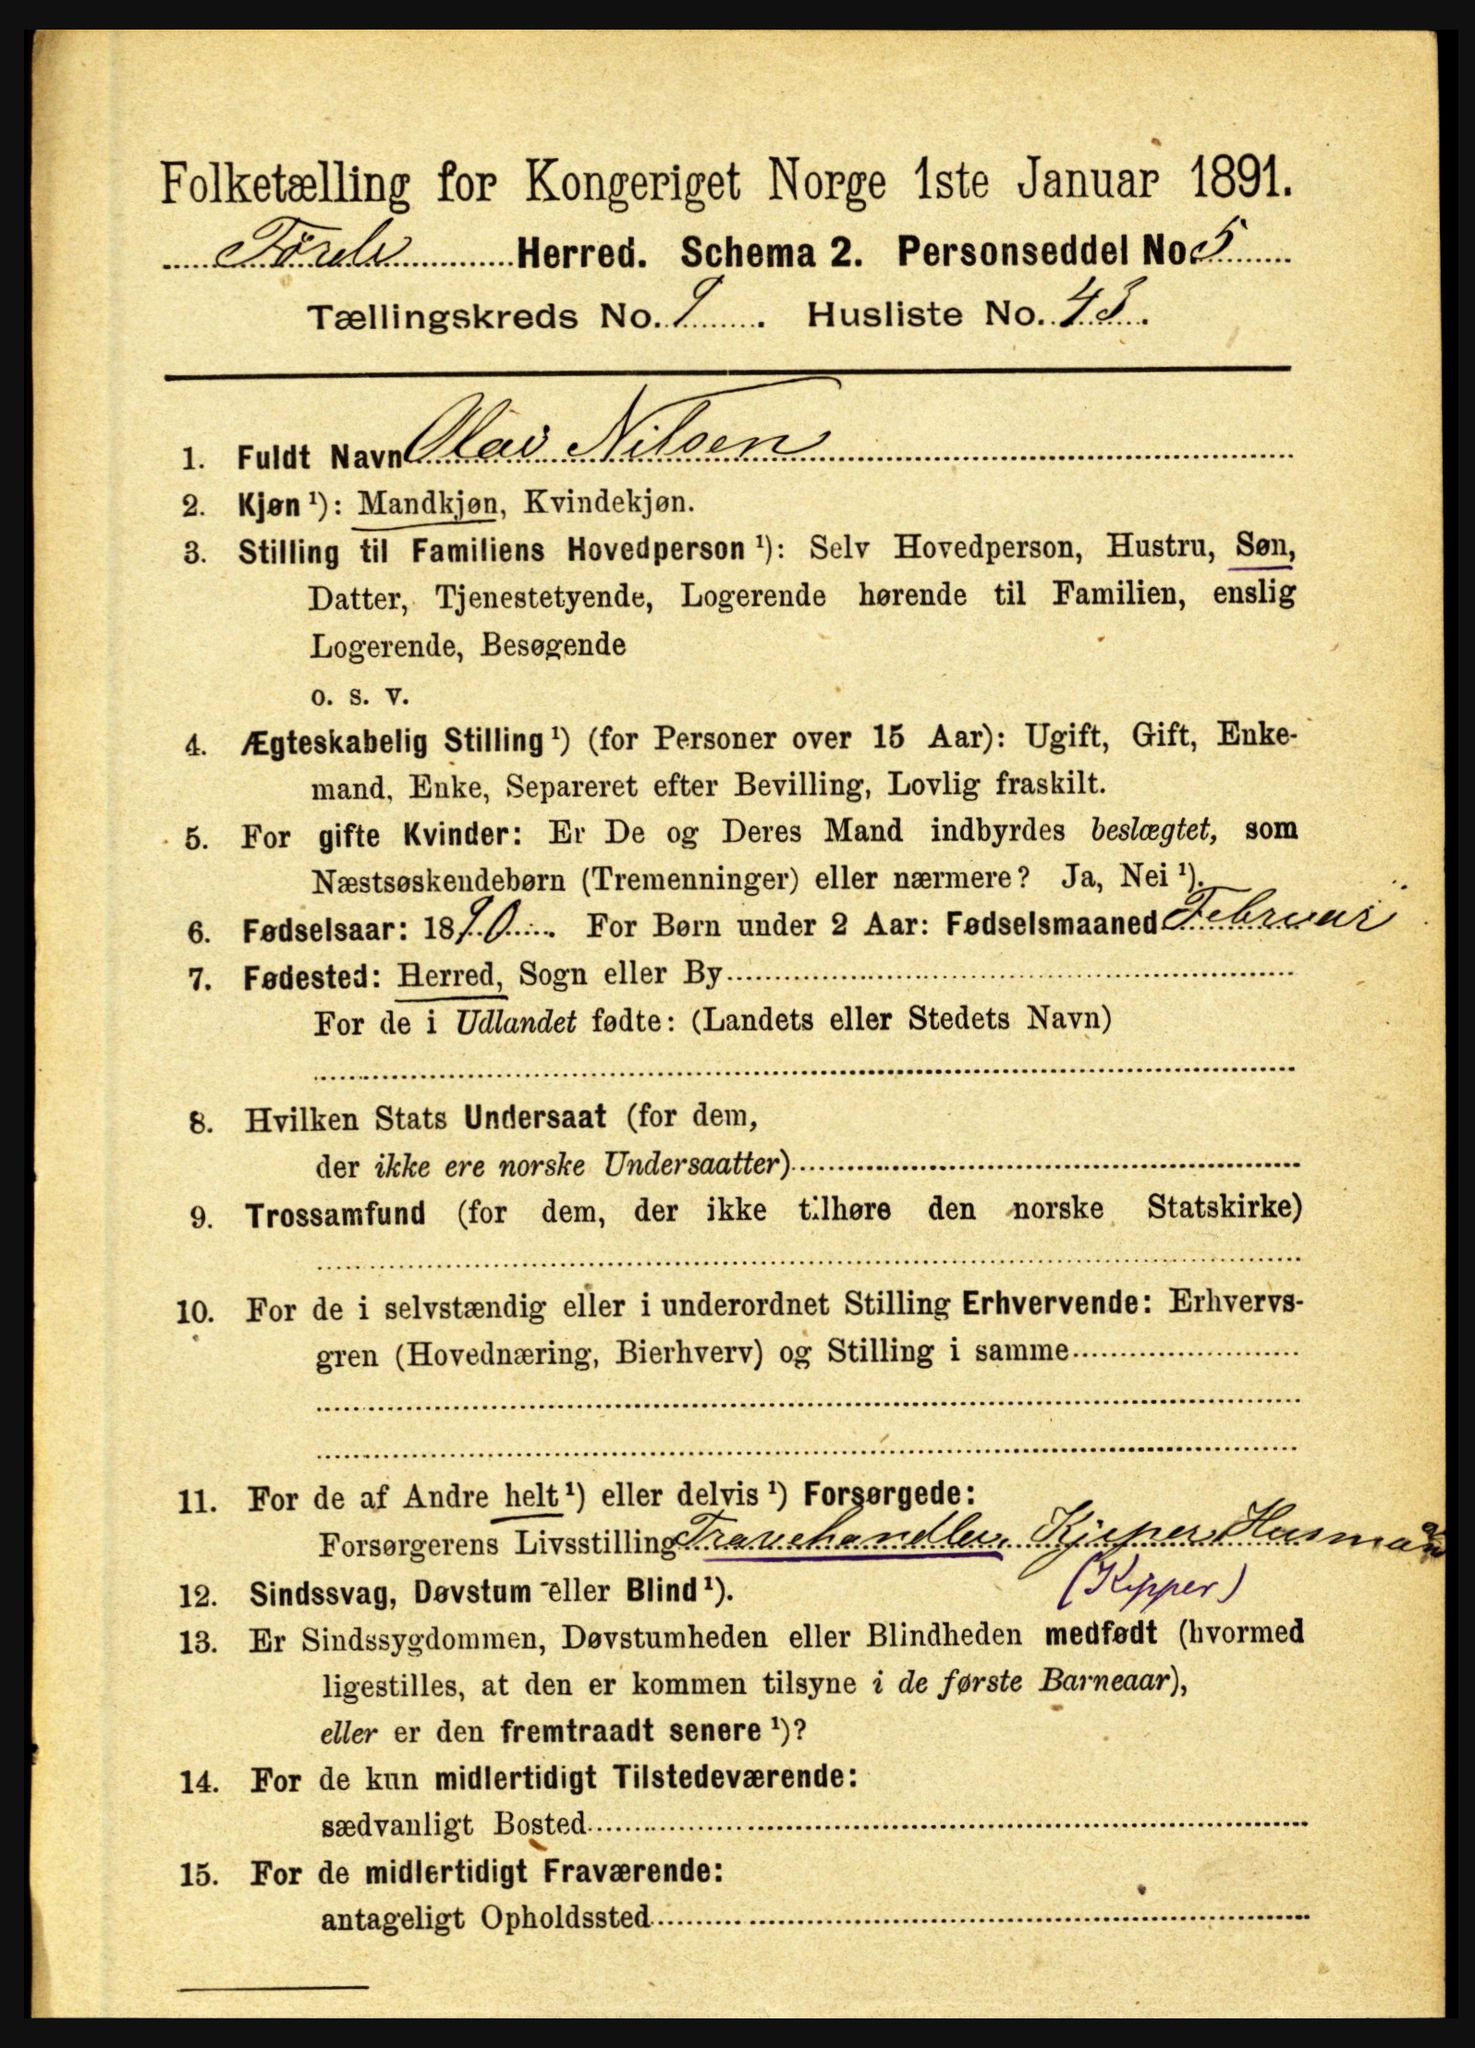 Folketælling for Kongeriget Norge 1ste Januar 1891.
Førde Herred. Schema 2. Personseddel No. 5
Tællingskreds No. 9. Husliste No. 43.
1. Fuldt Navn Olai Nilsen
2. Kjøn ¹): Mandkjøn, Kvindekjøn.
3. Stilling til Familiens Hovedperson ¹): Selv Hovedperson, Hustru, Søn,
Datter, Tjenestetyende, Logerende hørende til Familien, enslig
Logerende, Besøgende
o. s. v.
4. Ægteskabelig Stilling ¹) (for Personer over 15 Aar): Ugift, Gift, Enke-
mand, Enke, Separeret efter Bevilling, Lovlig fraskilt.
5. For gifte Kvinder: Er De og Deres Mand indbyrdes beslægtet, som
Næstsøskendebørn (Tremenninger) eller nærmere? Ja, Nei ¹).
6. Fødselsaar: 1890. For Børn under 2 Aar: Fødselsmaaned Februar
7. Fødested: Herred, Sogn eller By
For de i Udlandet fødte: (Landets eller Stedets Navn)
8. Hvilken Stats Undersaat (for dem,
der ikke ere norske Undersaatter)
9. Trossamfund (for dem, der ikke tilhøre den norske Statskirke)
10. For de i selvstændig eller i underordnet Stilling Erhvervende: Erhvervs-
gren (Hovednæring, Bierhverv) og Stilling i samme
11. For de af Andre helt ¹) eller delvis ¹) Forsørgede:
Forsørgerens Livsstilling Travehandler. Kjeper Husmand
(Kipper)
12. Sindssvag, Døvstum eller Blind ¹).
13. Er Sindssygdommen, Døvstumheden eller Blindheden medfødt (hvormed
ligestilles, at den er kommen tilsyne i de første Barneaar),
eller er den fremtraadt senere ¹)?
14. For de kun midlertidigt Tilstedeværende:
sædvanligt Bosted
15. For de midlertidigt Fraværende:
antageligt Opholdssted